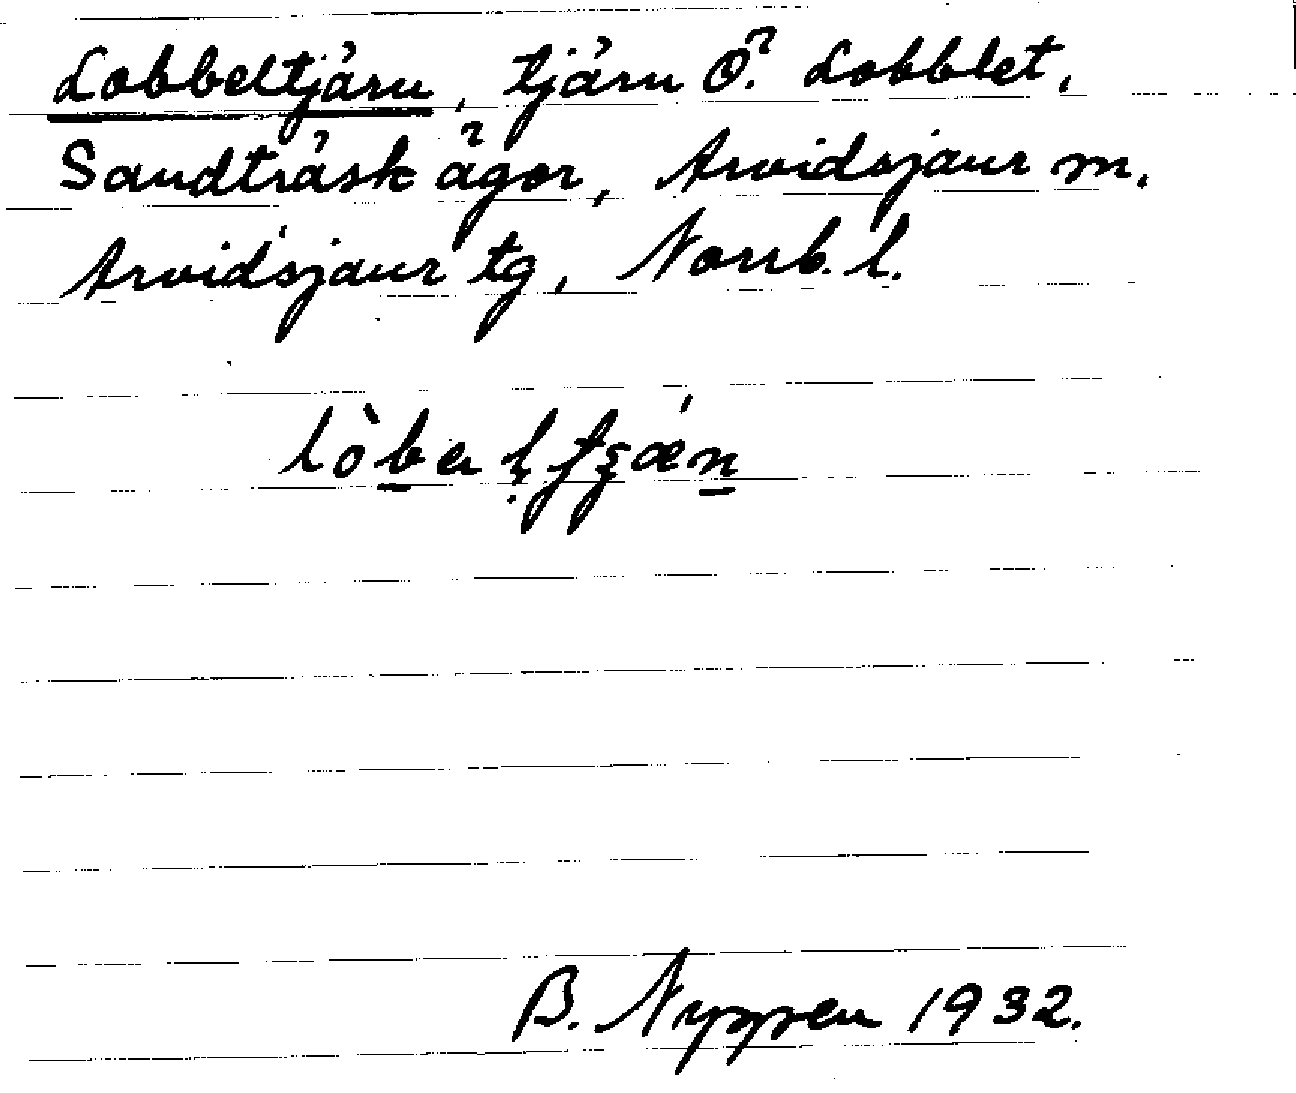 Lobbeltjärn, tjärn Ö. Lobblet,
Sandträsk ägor, Arvidsjaur sn.
Arvidsjaur tg, Norrb. l.
B. Nyppen 1932.